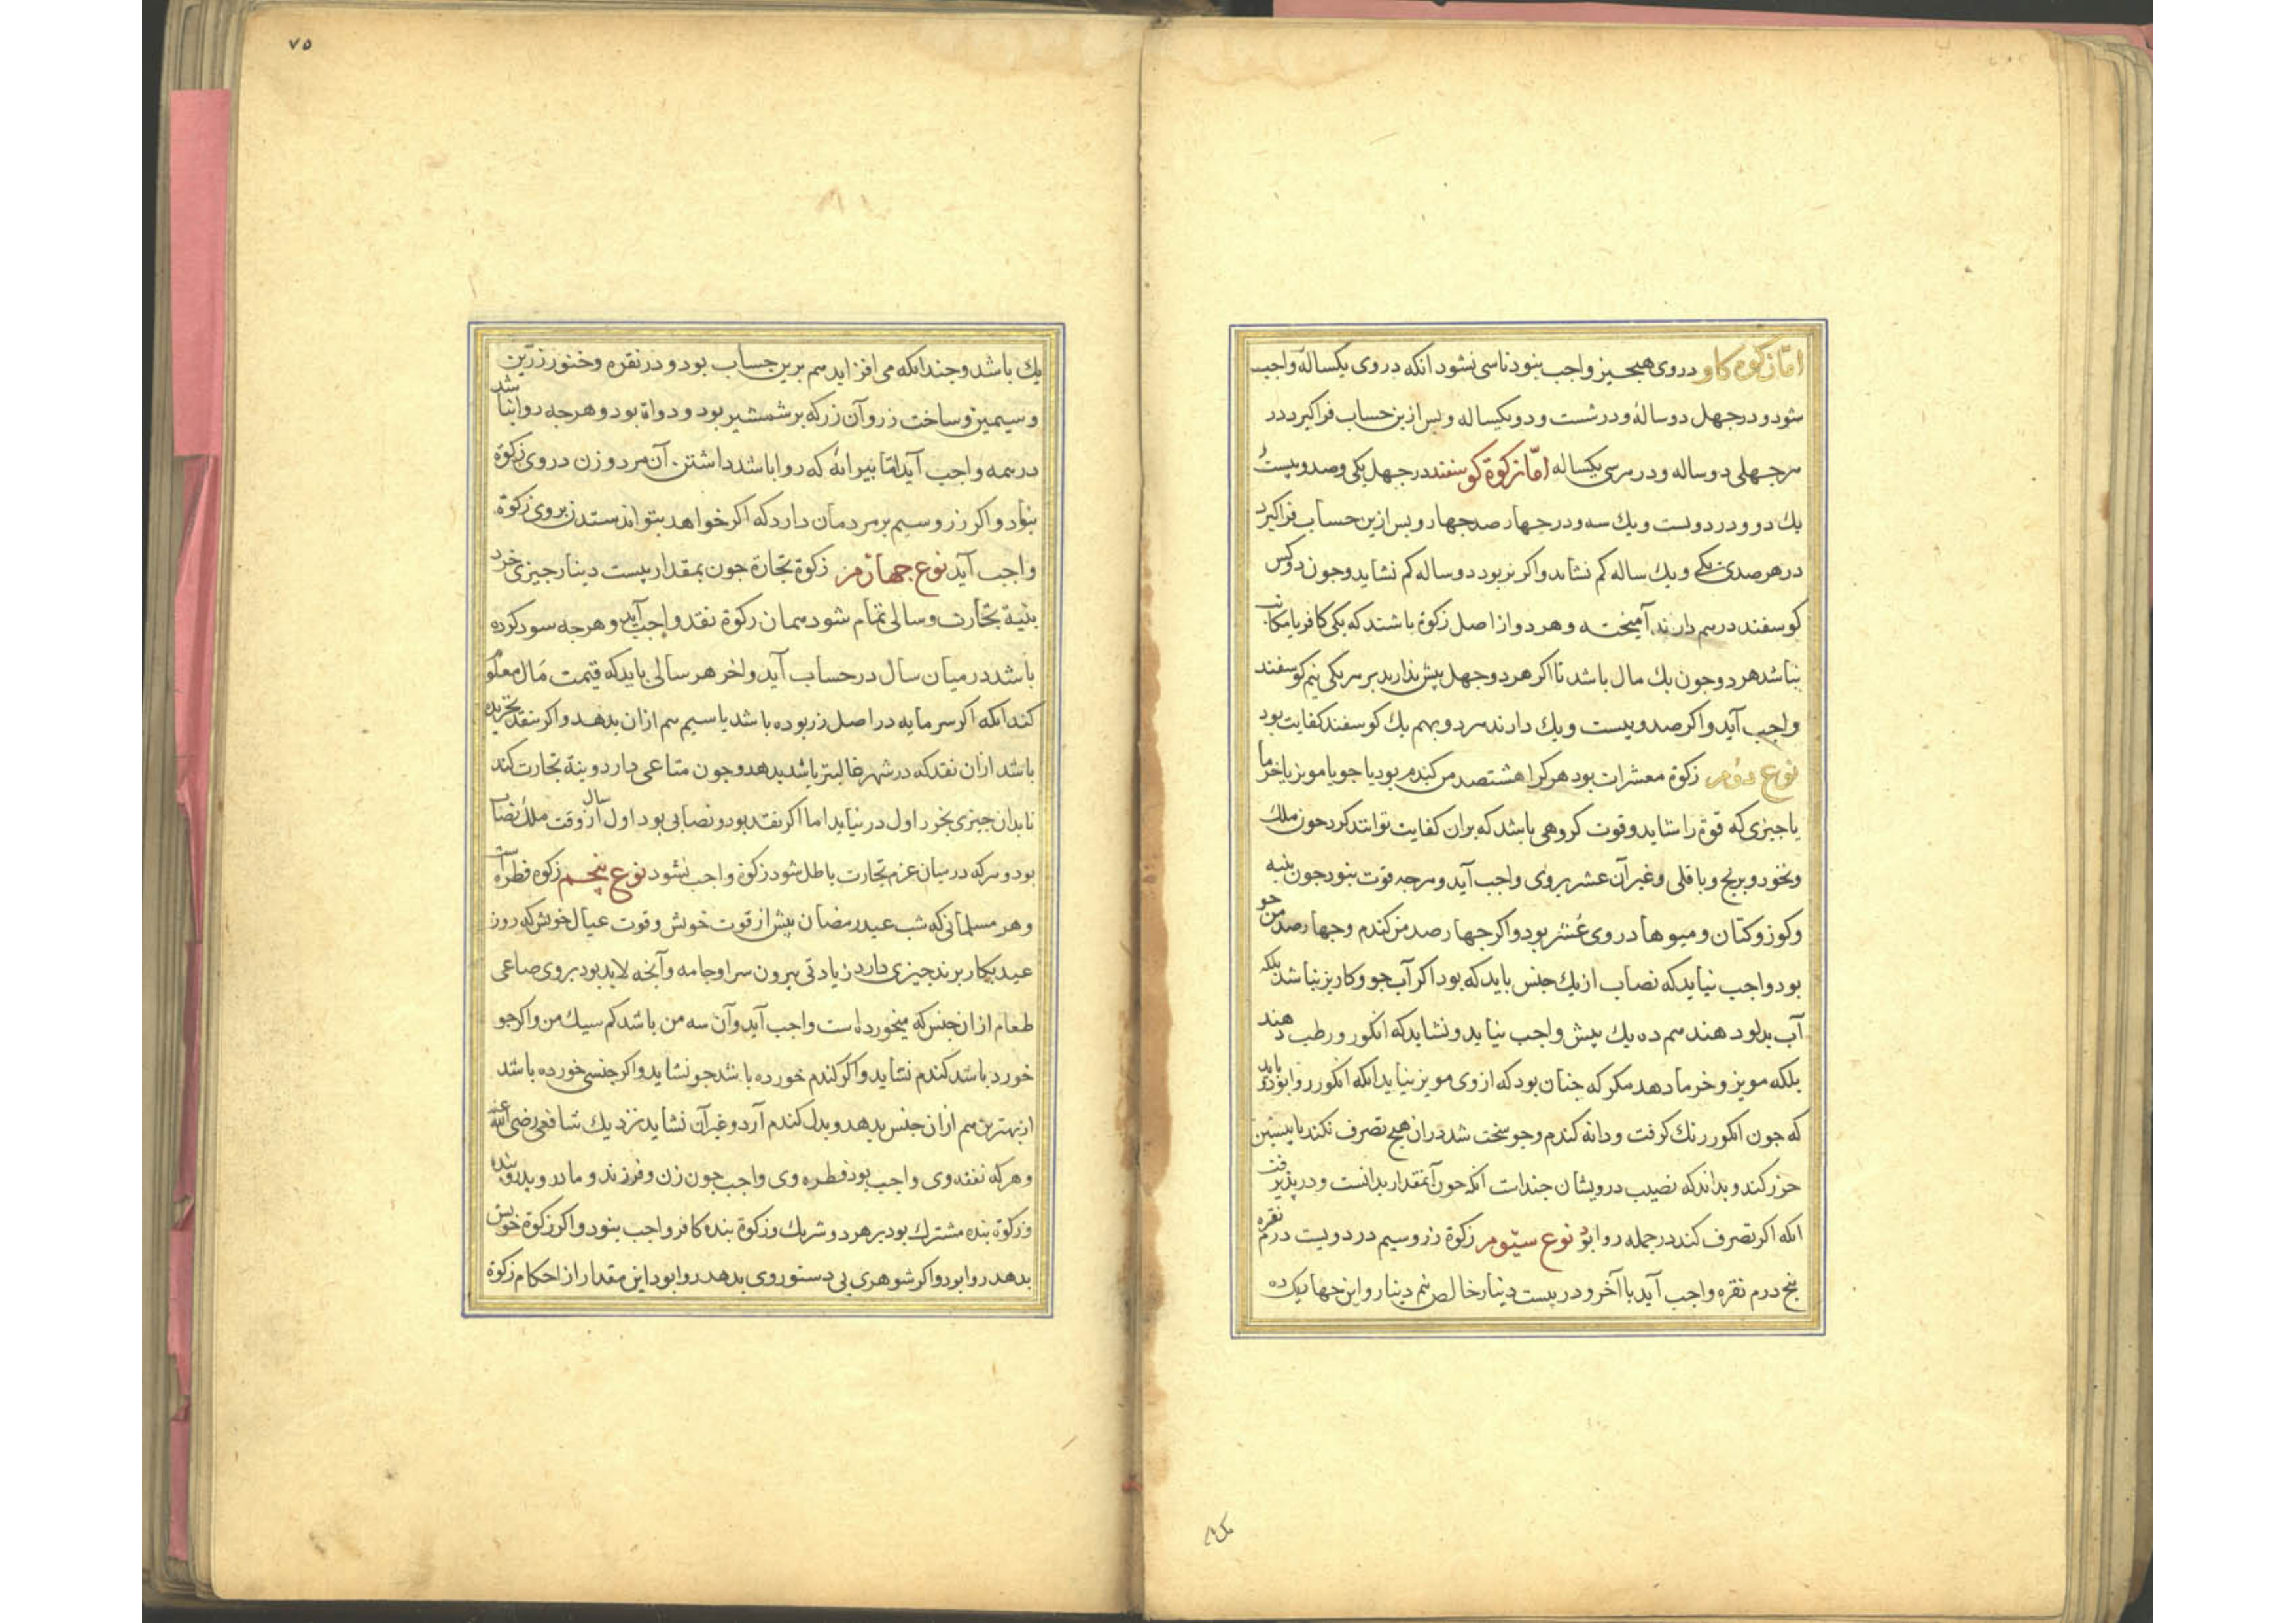 امّا زكوة كاو در وى هيچ چيز واجب نبود تا سى نشود انكه در وى يكساله واجب
شود و در جهل دوساله و در شست و دو يكساله و پس ازين حساب فراكيرد در
هر جهلى دوساله و در هر سى يكساله امّا زكوة كوسفند در جهل يكى و صد و بيست و
يك دو و در دويست و يك سه و در جهار صد جهار و پس ازين حساب فراكيرد
در هر صدى يكى و يك ساله كم نشايد و اكر بز بود دوساله كم نشايد و جون دو كس
كوسفند درهم دارند آميخته و هر دو از اصل زكوة باشند كه يكى كافر يا مكاتب
نباشد هر دو جون يك مال باشد تا اكر هر دو جهل بيش ندارند بر هر يكى نيم كوسفند
واجب آيد و اكر صد و بيست و يك دارند هر دو بهم يك كوسفند كفايت بود
نوع دوم زكوة معشرات بود هركرا هشتصد من كندم بود يا جو يا مويز يا خرما
يا جيزى كه قوة را شايد و قوت كروهى باشد كه بران كفايت توانند كرد جون ملك
و نخود و برنج و باقلى و غير آن عشر بروى واجب آيد و هرجه قوت نبود جون پنبه
و كوز و كتان و ميوها در وى عُشر نبود و اكر جهار صد من كندم و جهار صد من جو
بود واجب نيايد كه نصاب از يك جنس بايد كه بود اكر آب جو و كاريز نباشد بلكه
آب بدلو دهند هم ده يك بيش واجب نيايد و نشايد كه انكور و رطب دهند
بلكه مويز و خرما دهد مكر كه جنان بود كه از وى مويز نيايد انكه انكور روا بود و بايد
كه جون انكور رنك كرفت و دانه كندم و جو سخت شد در ان هيچ تصرف نكند تا پيشين
حزر كند و بداند كه نصيب درويشان جنداست انكه جون آنمقدار بدانست و در پذيرفت
انكه اكر تصرف كند در جمله روا بود نوع سيّوم زكوة زر و سيم در دويست درم نقره
پنج درم نقره واجب آيد با آخر و در بيست دينار خالص نيم دينار و اين جهار يك ده
يك باشد و جندانكه مى افزايد هم برين حساب بود و در نقره و خنور زرّين
و سيمين و ساخت زر و آن زر كه بر شمشير بود و دواة بود و هرجه روا نباشد
در همه واجب آيد امّا پيرايۀ كه روا باشد داشتن آن مرد و زن در وى زكوة
نبود و اكر زر و سيم بر مردمان دارد كه اكر خواهد بتواند ستدن بروى زكوة
واجب آيد نوع جهارم زكوة تجارة جون بمقدار بيست دينار جيزى خرد
بنية تجارت و سالى تمام شود همان زكوة نقد واجب آيد و هرجه سود كرده
باشد در ميان سال در حساب آيد و اخر هر سالى بايد كه قيمت مال معلوم
كند انكه اكر سرمايه در اصل زر بوده باشد يا سيم هم از ان بدهد و اكر بنقد نخريده
باشد از ان نقد كه در شهر غالبتر باشد بدهد و جون متاعى دارد و بنية تجارت كند
تا بدان جيزى نخرد اول در نيايد اما اكر نقد بود و نصابى بود اول سال از وقت ملك نصاب
بود و هركه در ميان عزم تجارت باطل شود زكوة واجب نشود نوع پنجم زكوة فطر است
و هر مسلمانى كه شب عيد رمضان بيش از قوت خويش و قوت عيال خويش كه روز
عيد بكار برند جيزى دارد زيادتى بيرون سرا و جامه و آنچه لابد بود بروى صاعى
طعام از ان جنس كه ميخورده است واجب آيد و آن سه من باشد كم سيك من و اكر جو
خورد باشد كندم نشايد و اكر كندم خورده باشد جو نشايد و اكر جنسى خورده باشد
از بهترين هم از ان جنس بدهد و بدل كندم آرد و غير آن نشايد نزديك شافعى رضى الله عنه
و هركه نفقه وى واجب بود فطره وى واجب جون زن و فرزند و مادر و پدر و بنده
و زكوة بنده مشترك بود بر هر دو شريك و زكوة بنده كافر واجب نبود و اكر زكوة خويش
بدهد روا بود و اكر شوهرى بى دستورى وى بدهد روا بود اين مقدار از احكام زكوة
٧٥